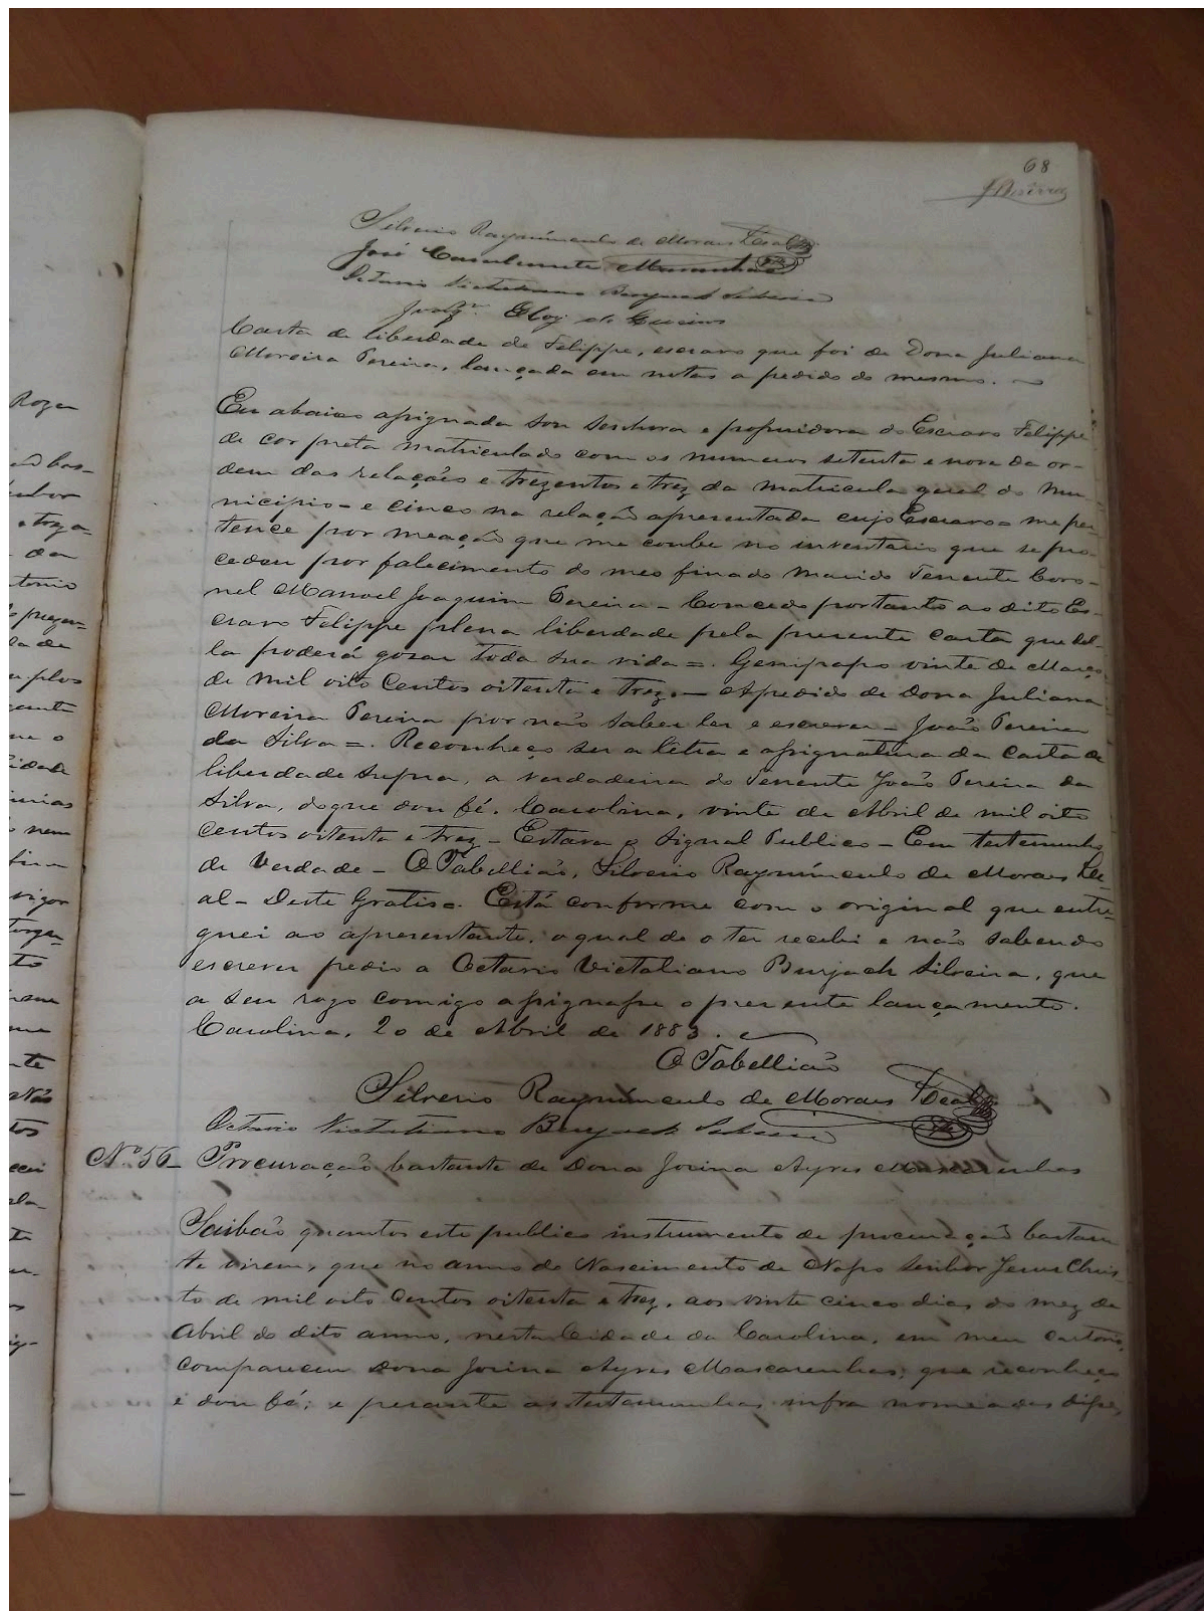 68
Silverio Raymundo de Moraes Leal
José Cavalcante Maranhão
Octavio Victaliano Burjack Silveira
Joaqm. Eloy de
Carta de liberdade de Felippe, escravo que foi de Dona Juliana
Moreira Pereira, lançada em notas a pedido do mesmo.
Eu abaixo assignada sou senhora e possuidora do Escravo Felippe
de cor preta matriculado com os numeros setenta e nove da or-
dem das relações e trezentos e trez da matricula geral do mu-
nicipio - e cinco na relação apresentada cujo Escravo a me per-
tence por meação que me coube no inventario que se pro-
cedeu por falecimento do meo finado marido Tenente Coro-
nel Manoel Joaquim Pereira - Concedo portanto ao dito Es-
cravo Felippe plena liberdade pela presente carta que del-
la poderá gosar toda sua vida =. Genipapo vinte de Março
de mil oito Centos oitenta e trez. - Apedido de Dona Juliana
Moreira Pereira por não saber ler e escrever - João Pereira
da Silva =. Reconheço ser a letra e assignatura da Carta de
liberdade supra, a verdadeira do Tenente João Pereira da
Silva, do que dou fé. Carolina, vinte de Abril de mil oito
Centos oitenta e trez - Estava o Signal Publico - Em testemunho
de Verdade - O Tabellião, Silverio Raymundo de Moraes Le-
al - Deste Gratis. Está conforme com o original que entre-
guei ao apresentante, o qual de o ter recebi e não sabendo
escrever pedio a Octavio Victaliano Burjack Silveira, que
a seu rogo comigo assignasse o presente lançamento.
Carolina, 20 de Abril de 1883.
O Tabellião
Silverio Raymundo de Moraes Leal
Octavio Victaliano Burjack Silveira
Nº 56 - Procuração bastante de Dona Jovina Ayres Mascarenhas
Saibão quantos este publico instrumento de procuração bastan-
te virem, que no anno do Nascimento de Nosso Senhor Jesus Chris-
to de mil oito Centos oitenta e trez, aos vinte cinco dias do mez de
Abril do dito anno, nesta Cidade da Carolina, em meu cartorio,
compareceu Dona Jovina Ayres Mascarenhas, que reconheço
e dou fé; e perante as testemunhas infra nomeadas disse,